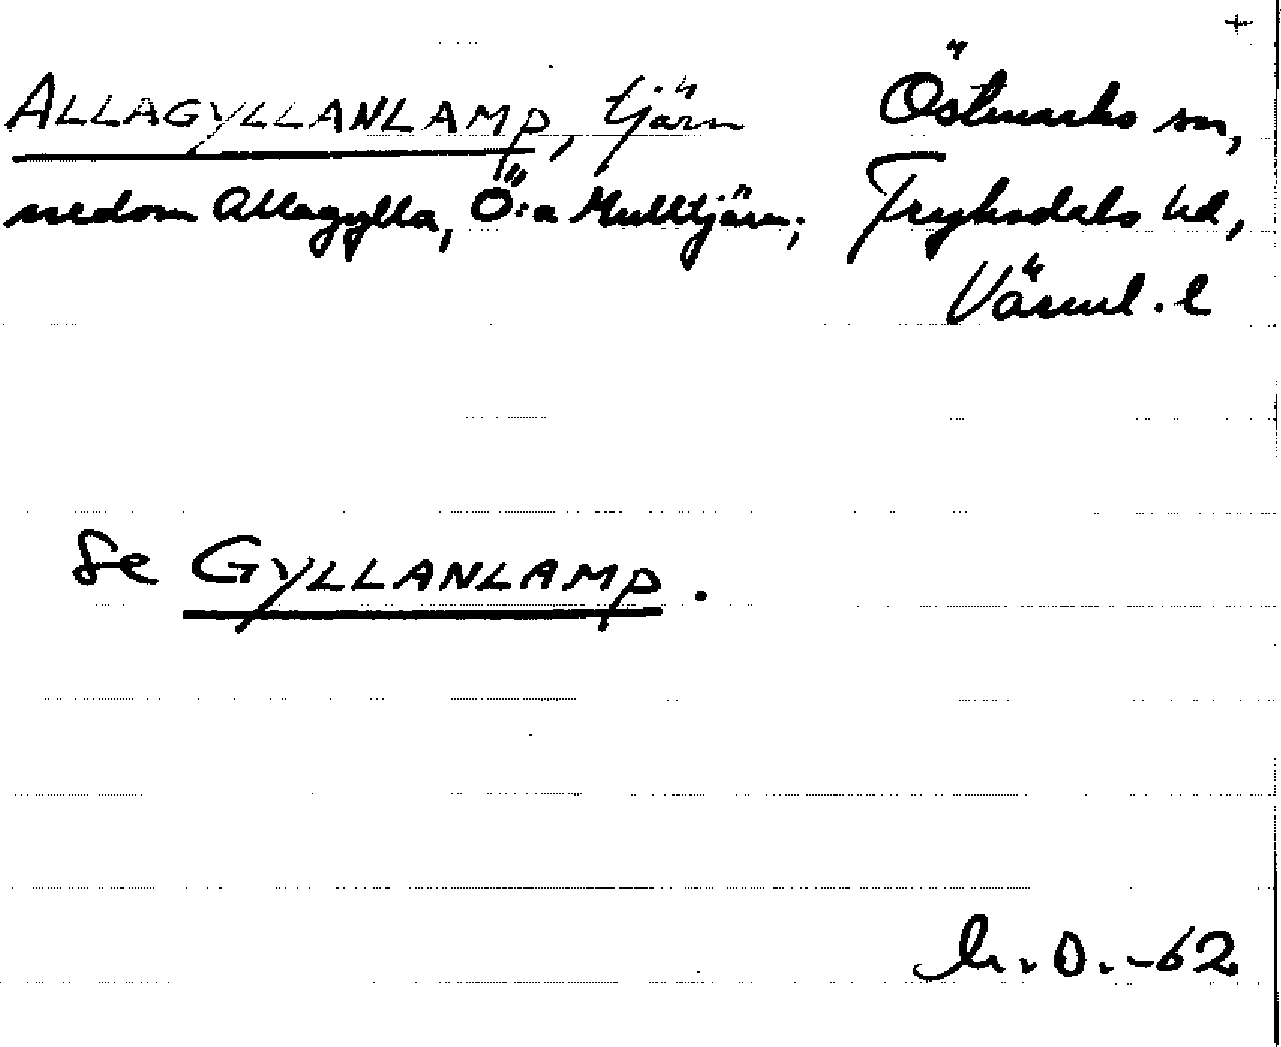 +
ALLAGYLLANLAMP, tjärn Östmarks sn,
nedom Allagylla, Ö:a Mulltjärn; Fryksdals hd,
Värml. l
Se GYLLANLAMP.
-62